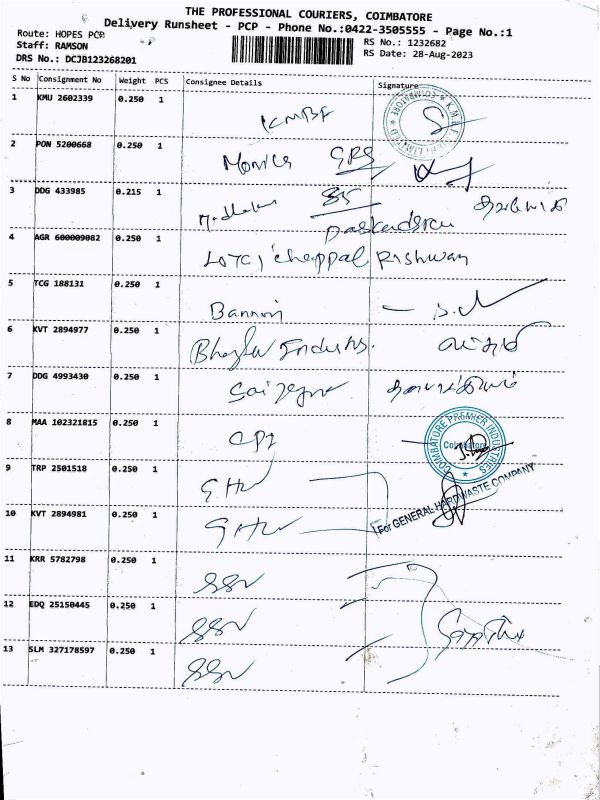 THE PROFESSIONAL COURIERS, COIMBATORE
Delivery Runsheet - PCP - Phone No.:0422-3505555 - Page No.:1
Route: HOPES PCP
Staff: RAMSON
DRS No.: DCJB123268201
RS No.: 1232682
RS Date: 28-Aug-2023
S No Consignment No Weight PCS Consignee Details Signature
1 KMU 2602339 0.250 1 KMBF
2 PON 5200668 0.250 1 Monica GRS
3 DDG 433985 0.215 1 85
4 AGR 600009082 0.250 1 chappal Rishwan
5 TCG 188131 0.250 1 Bannari
6 KVT 2894977 0.250 1
7 DDG 4993430 0.250 1
8 MAA 102321815 0.250 1 CPI
COIMBATORE PREMIER INDUSTRIES
Coimbatore
9 TRP 2501518 0.250 1 GHW
For GENERAL HARDWASTE COMPANY
10 KVT 2894981 0.250 1 GHW
11 KRR 5782798 0.250 1 SSV
12 EDQ 25150445 0.250 1 SSV
13 SLM 327178597 0.250 1 SSV